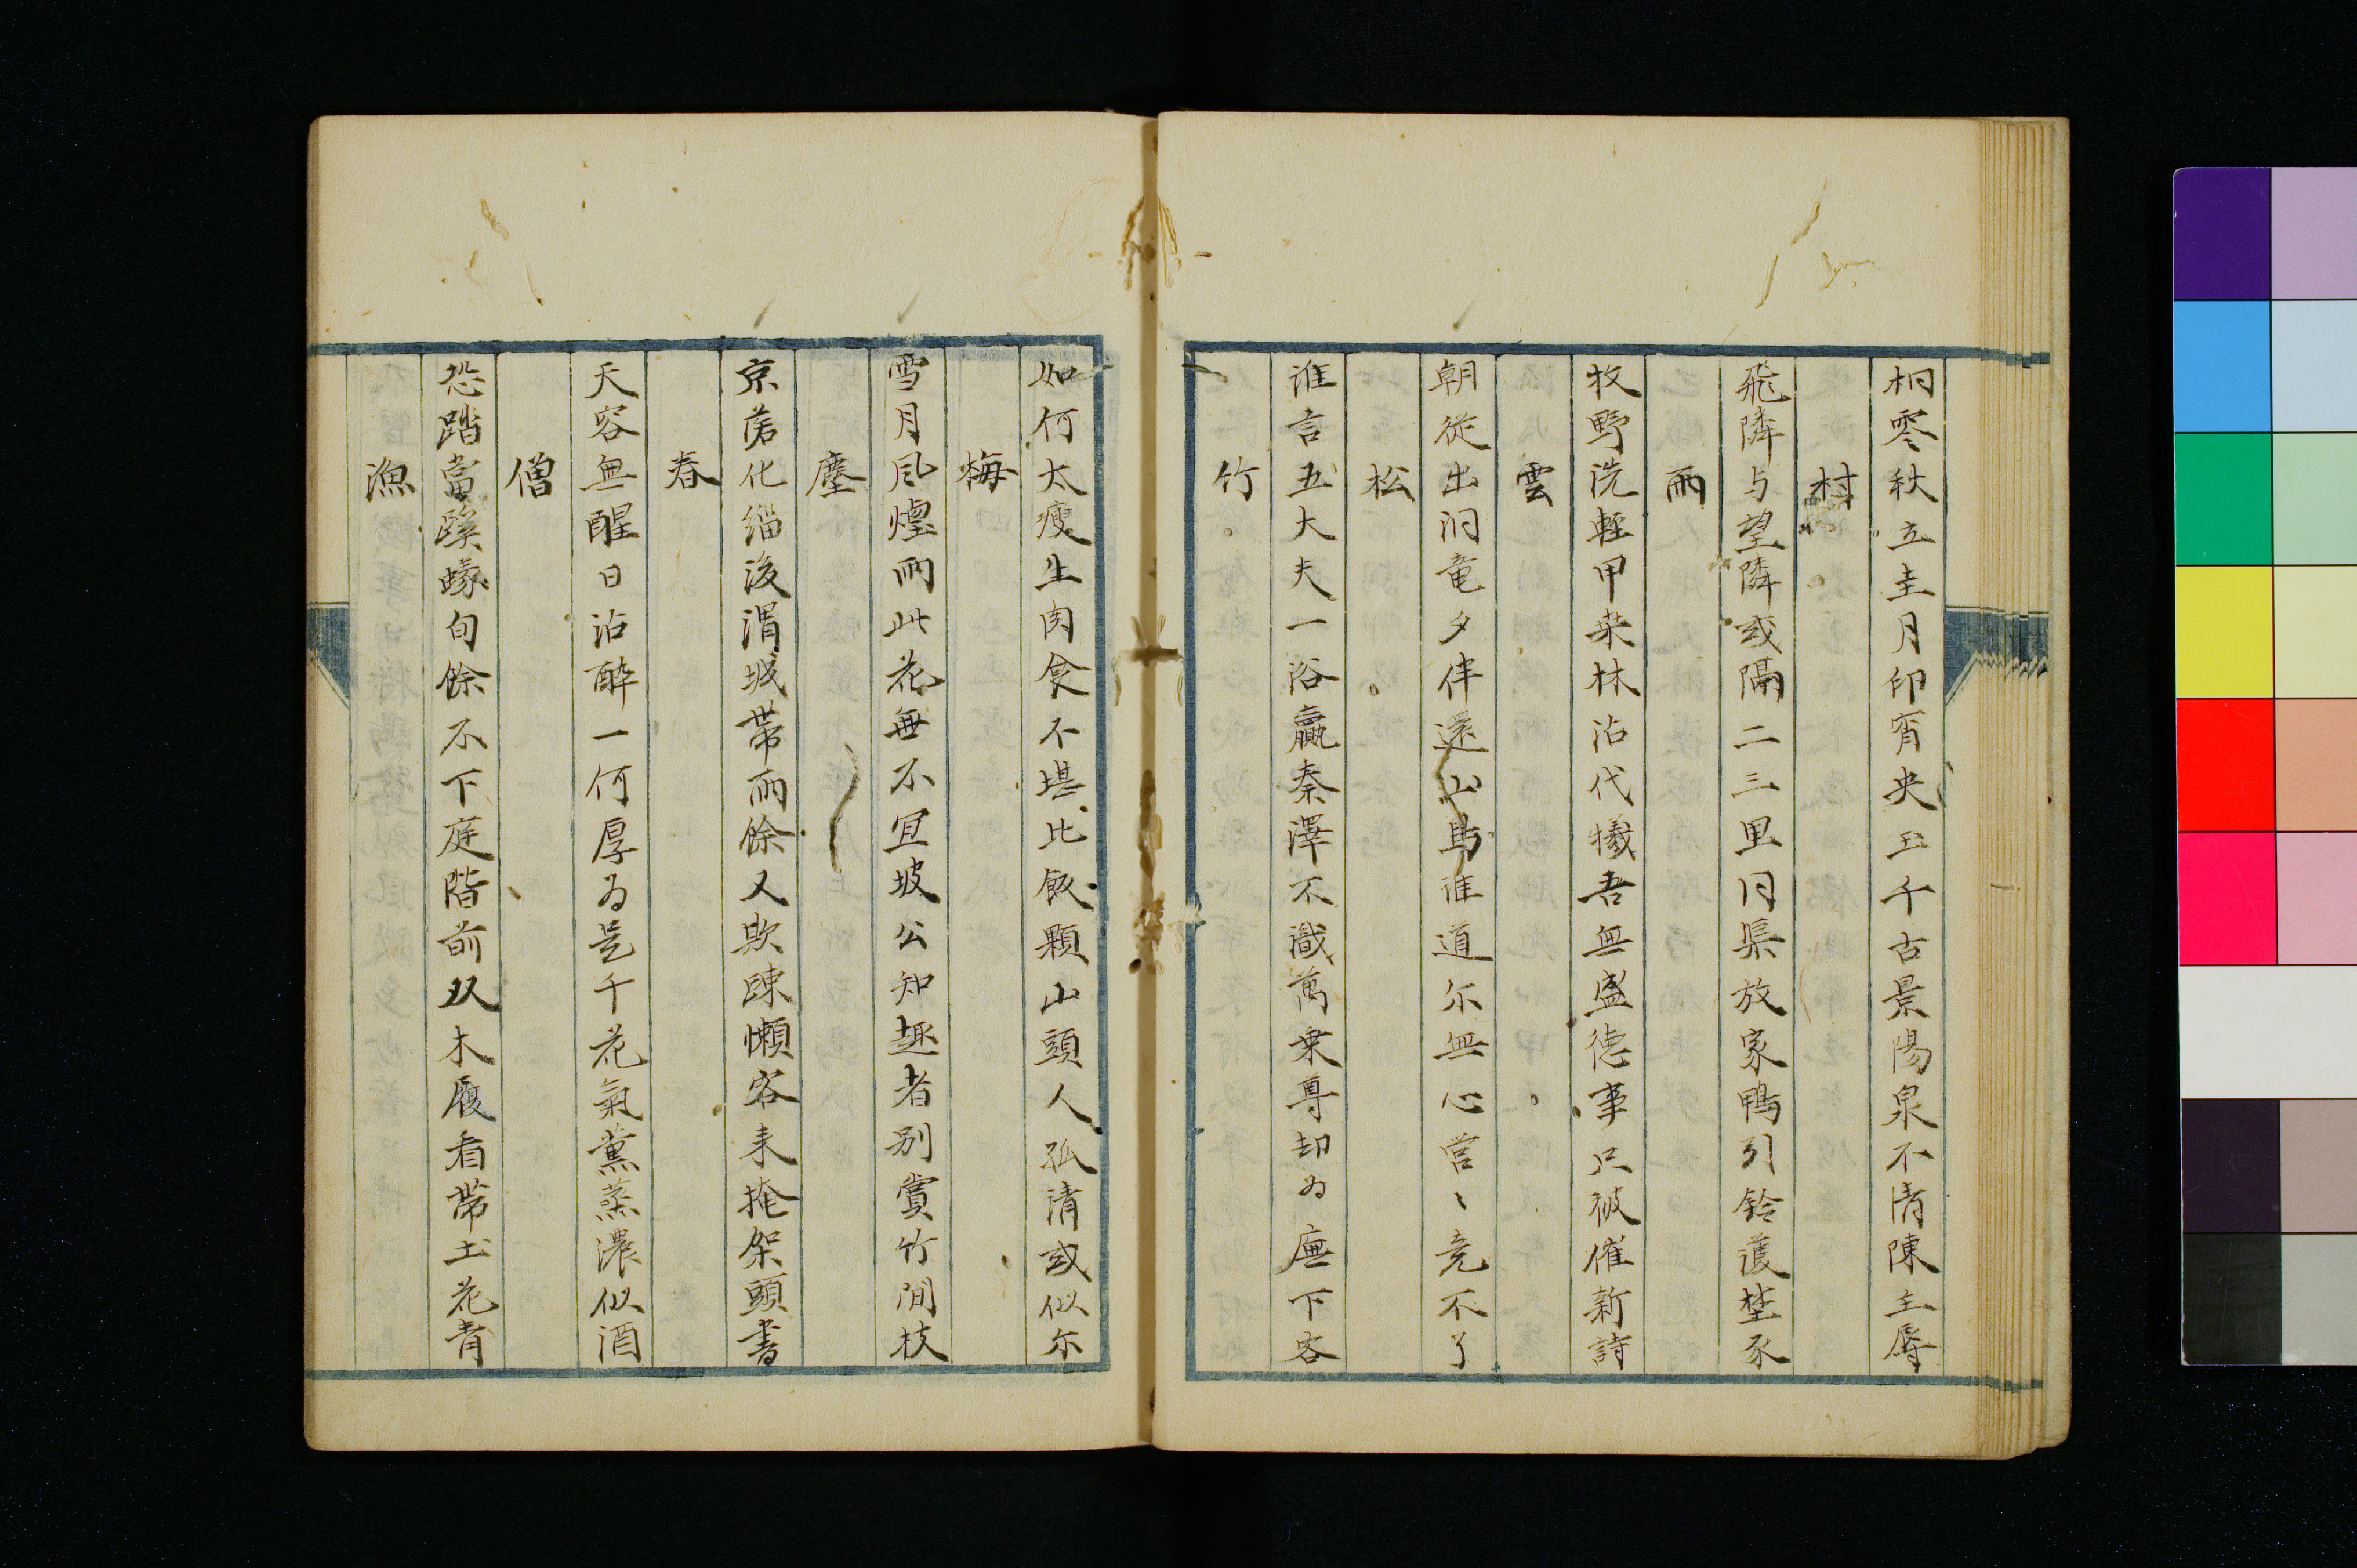 桐零秋立圭月印宵央玉千古景陽泉不洧陳主辱
村
飛隣与望隣或隔二三里同渠放家鴨引鈴護埜豕
雨
牧野洗輕甲桒林沾代犧吾無盛德事只被催新詩
雲
朝從出洞竜夕伴還山鳥誰道尓無心營〻竞不了
松
誰言五大夫一浴贏秦澤不識萬乗尊却为廡下客
竹
如何太瘦生肉食不堪比飯顆山頭人孤清或似尓
梅
雪月風煙雨此花無不宜坡公知趣者別賞竹間枝
塵
京洛化緇後渭城帶雨餘又欺踈懶客来掩架頭書
春
天容無醒日沾醉一何厚为是千花氣薫蒸濃似酒
僧
恐踏當蹊蟻旬餘不下庭階前双木履看帶土花青
漁